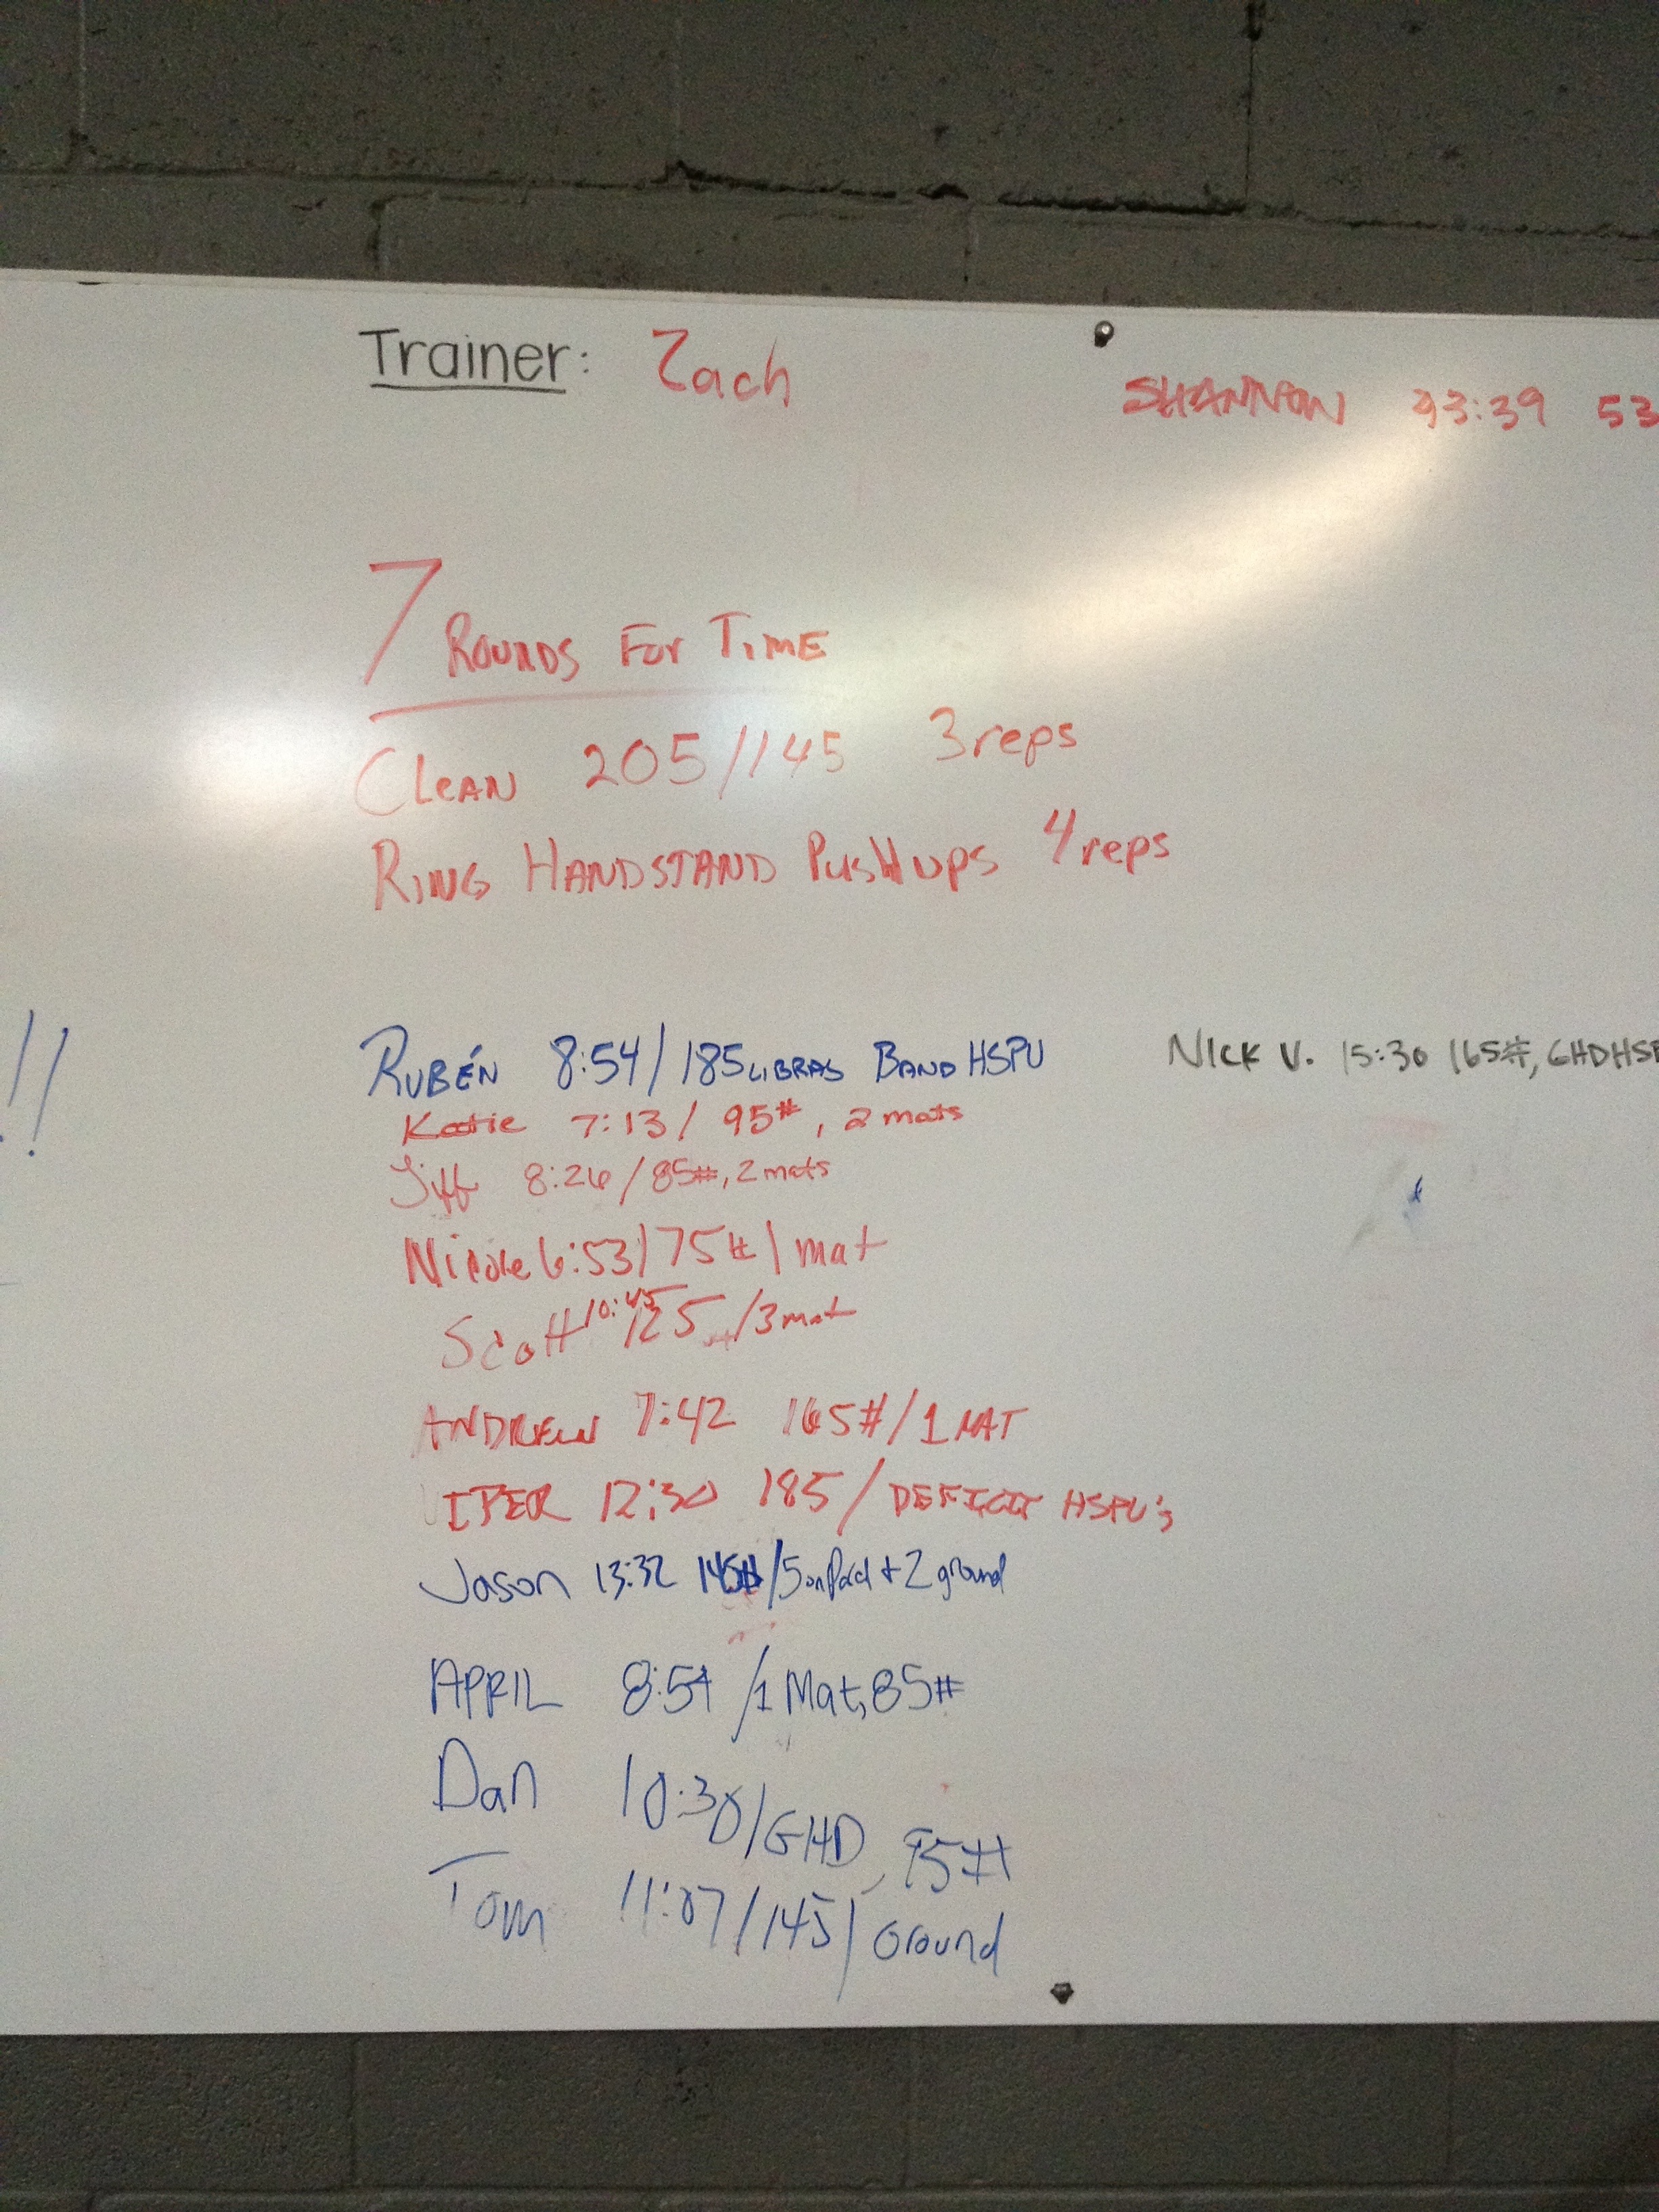 Trainer: Zach
SHANNON 43:39 53
7 ROUNDS FOR TIME
CLEAN 205/145 3 reps
RING HANDSTAND PUSHUPS 4 reps
!!
RUBÉN 8:54/185 LIBRAS BAND HSPU
NICK V. 15:30 165#, GHD HSP
Katie 7:13/ 95#, 2 mats
8:26/85#, 2 mats
Nicole 6:53/75#/mat
Scott 10:45 125 /3 mat
ANDREW 7:42 165#/1 MAT
VIPER 12:30 185/DEFICIT HSPU's
Jason 13:32 145#/5 on Pad + 2 ground
APRIL 8:54 /1 Mat, 85#
Dan 10:30/GHD, 95#
Tom 11:07/145/Ground